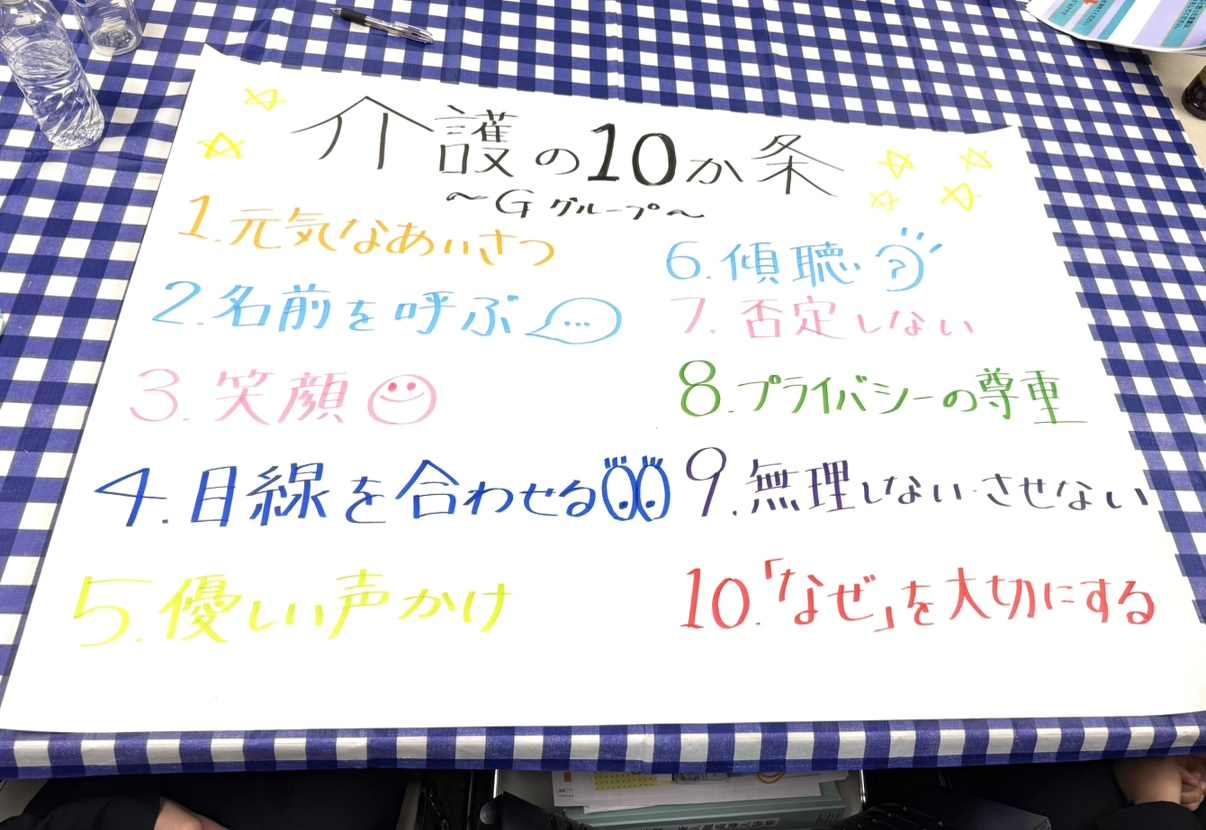 介護の10か条
〜Gグループ〜
1.元気なあいさつ
2.名前を呼ぶ
3.笑顔
4.目線を合わせる
5.優しい声かけ
6.傾聴
7.否定しない
8.プライバシーの尊重
9.無理しない・させない
10.「なぜ」を大切にする